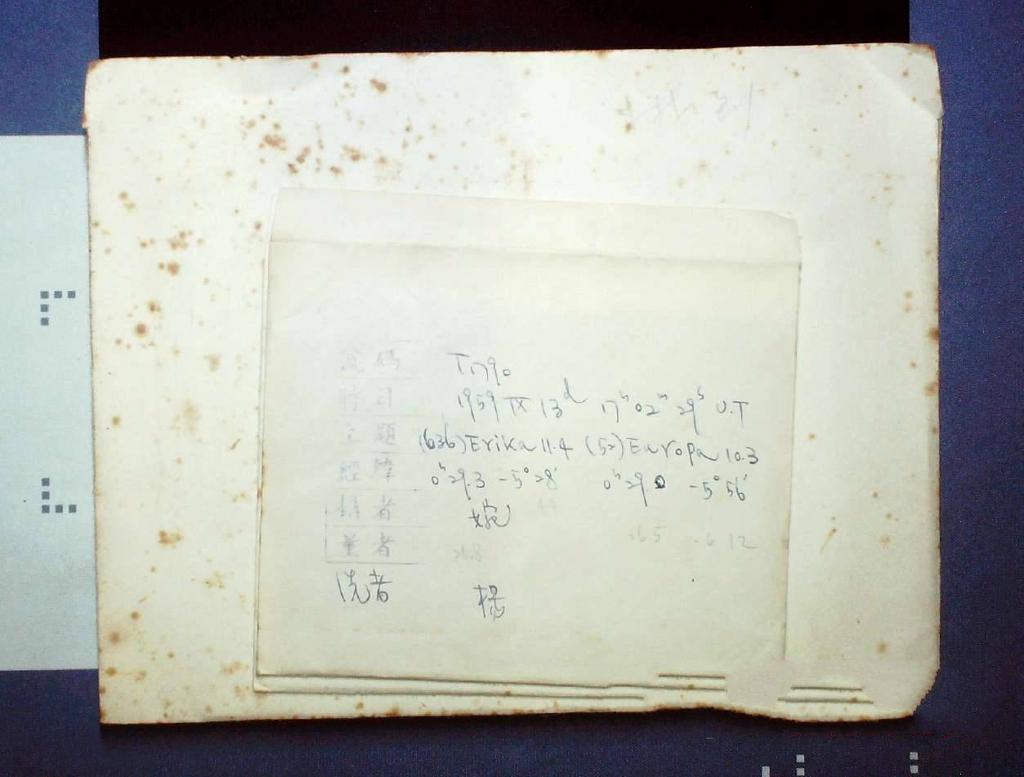 找到
底碼 T1790
時刻 1959 IX 13ᵈ 17ʰ 02ᵐ 29ˢ U.T
主題 (636) Erika 11.4 (52) Europa 10.3
經緯 0ʰ29.3 -5°28′ 0ʰ29.0 -5°56′
攝者 婉
量者 26.8 26.5 -6 12
洗者 楊